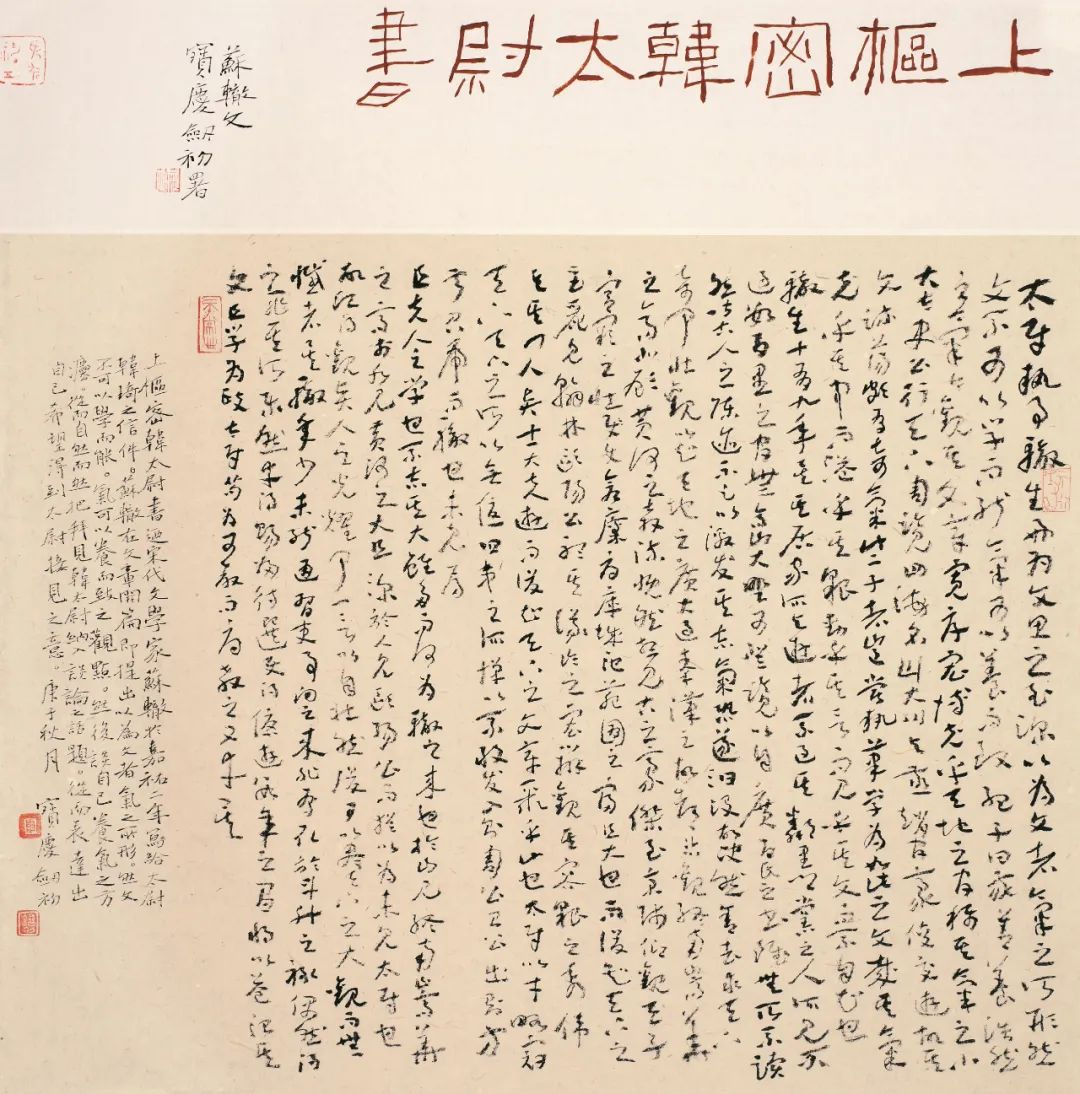 上樞密韓太尉書
蘇轍文
寶慶劍初署
太尉執事轍生好為文思之至深以為文者氣之所形然
文不可以學而能氣可以養而致孟子曰我善養浩然
之氣今觀其文章寬厚宏博充乎天地之間稱其氣之小
大太史公行天下周覽四海名山大川與燕趙間豪俊交遊故其
文疏蕩頗有奇氣此二子者豈嘗執筆學為如此之文哉其氣
充乎其中而溢乎其貌動乎其言而見乎其文而不自知也
轍生十有九年矣其居家所與遊者不過其鄰里鄉黨之人所見不
過數百里之間無高山大野可登覽以自廣百氏之書雖無所不讀
然皆古人之陳迹不足以激發其志氣恐遂汩沒故決然舍去求天下
奇聞壯觀以知天地之廣大過秦漢之故都恣觀終南嵩華
之高北顧黃河之奔流慨然想見古之豪傑至京師仰觀天子
宮闕之壯與倉廩府庫城池苑囿之富且大也而後知天下之
巨麗見翰林歐陽公聽其議論之宏辯觀其容貌之秀偉
與其門人賢士大夫遊而後知天下之文章聚乎此也太尉以才略冠
天下天下之所以無憂四夷之所憚以不敢發入則周公召公出則方
叔召虎而轍也未之見焉
且夫人之學也不志其大雖多而何為轍之來也於山見終南嵩華
之高於水見黃河之大且深於人見歐陽公而猶以為未見太尉也
故願得觀賢人之光耀聞一言以自壯然後可以盡天下之大觀而無
憾者矣轍年少未能通習吏事向之來非有取於斗升之祿偶然得
之非其所樂然幸得賜歸待選使得優遊數年之間將以益治其
文且學為政太尉苟為可教而辱教之又幸矣
上樞密韓太尉書迺宋代文學家蘇轍於嘉祐二年寫給太尉
韓琦之信件。蘇轍在文章開篇即提出以為文者氣之所形。然文
不可以學而能。氣可以養而致之觀點。然後談自己養氣之方
癥。從而自然而然把拜見韓太尉納入談論之話題。從而表達出
自己希望得到太尉接見之意。庚子秋月 寶慶劍初